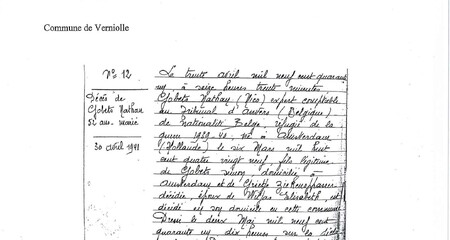 Commune de Verniolle
N° 12
Décès de
Gobets Nathan
52 ans. marié
30 avril 1941
Le trente avril mil neuf cent quarante
un à seize heures trente minutes
Gobets Nathan (Nico) expert comptable
au Tribunal d'Anvers (Belgique)
de nationalité Belge réfugié de la
guerre 1939-40 né à Amsterdam
(Hollande) le six Mars mil huit
cent quatre vingt neuf, fils légitime
de Gobets Simon domicilié à
Amsterdam et de Grietje
décédée, époux de Elisabeth, est
décédé en son domicile en cette commune
Dressé le deux Mai mil neuf cent
quarante un dix heures sur la